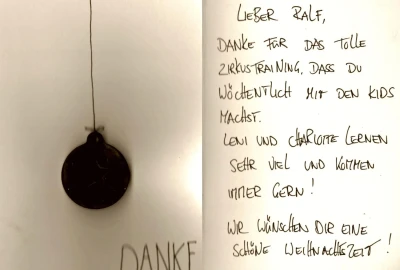 DANKE
LIEBER RALF,
DANKE FÜR DAS TOLLE
ZIRKUSTRAINING, DASS DU
WÖCHENTLICH MIT DEN KIDS
MACHST.
LENI UND CHARLOTTE LERNEN
SEHR VIEL UND KOMMEN
IMMER GERN!
WIR WÜNSCHEN DIR EINE
SCHÖNE WEIHNACHTSZEIT!